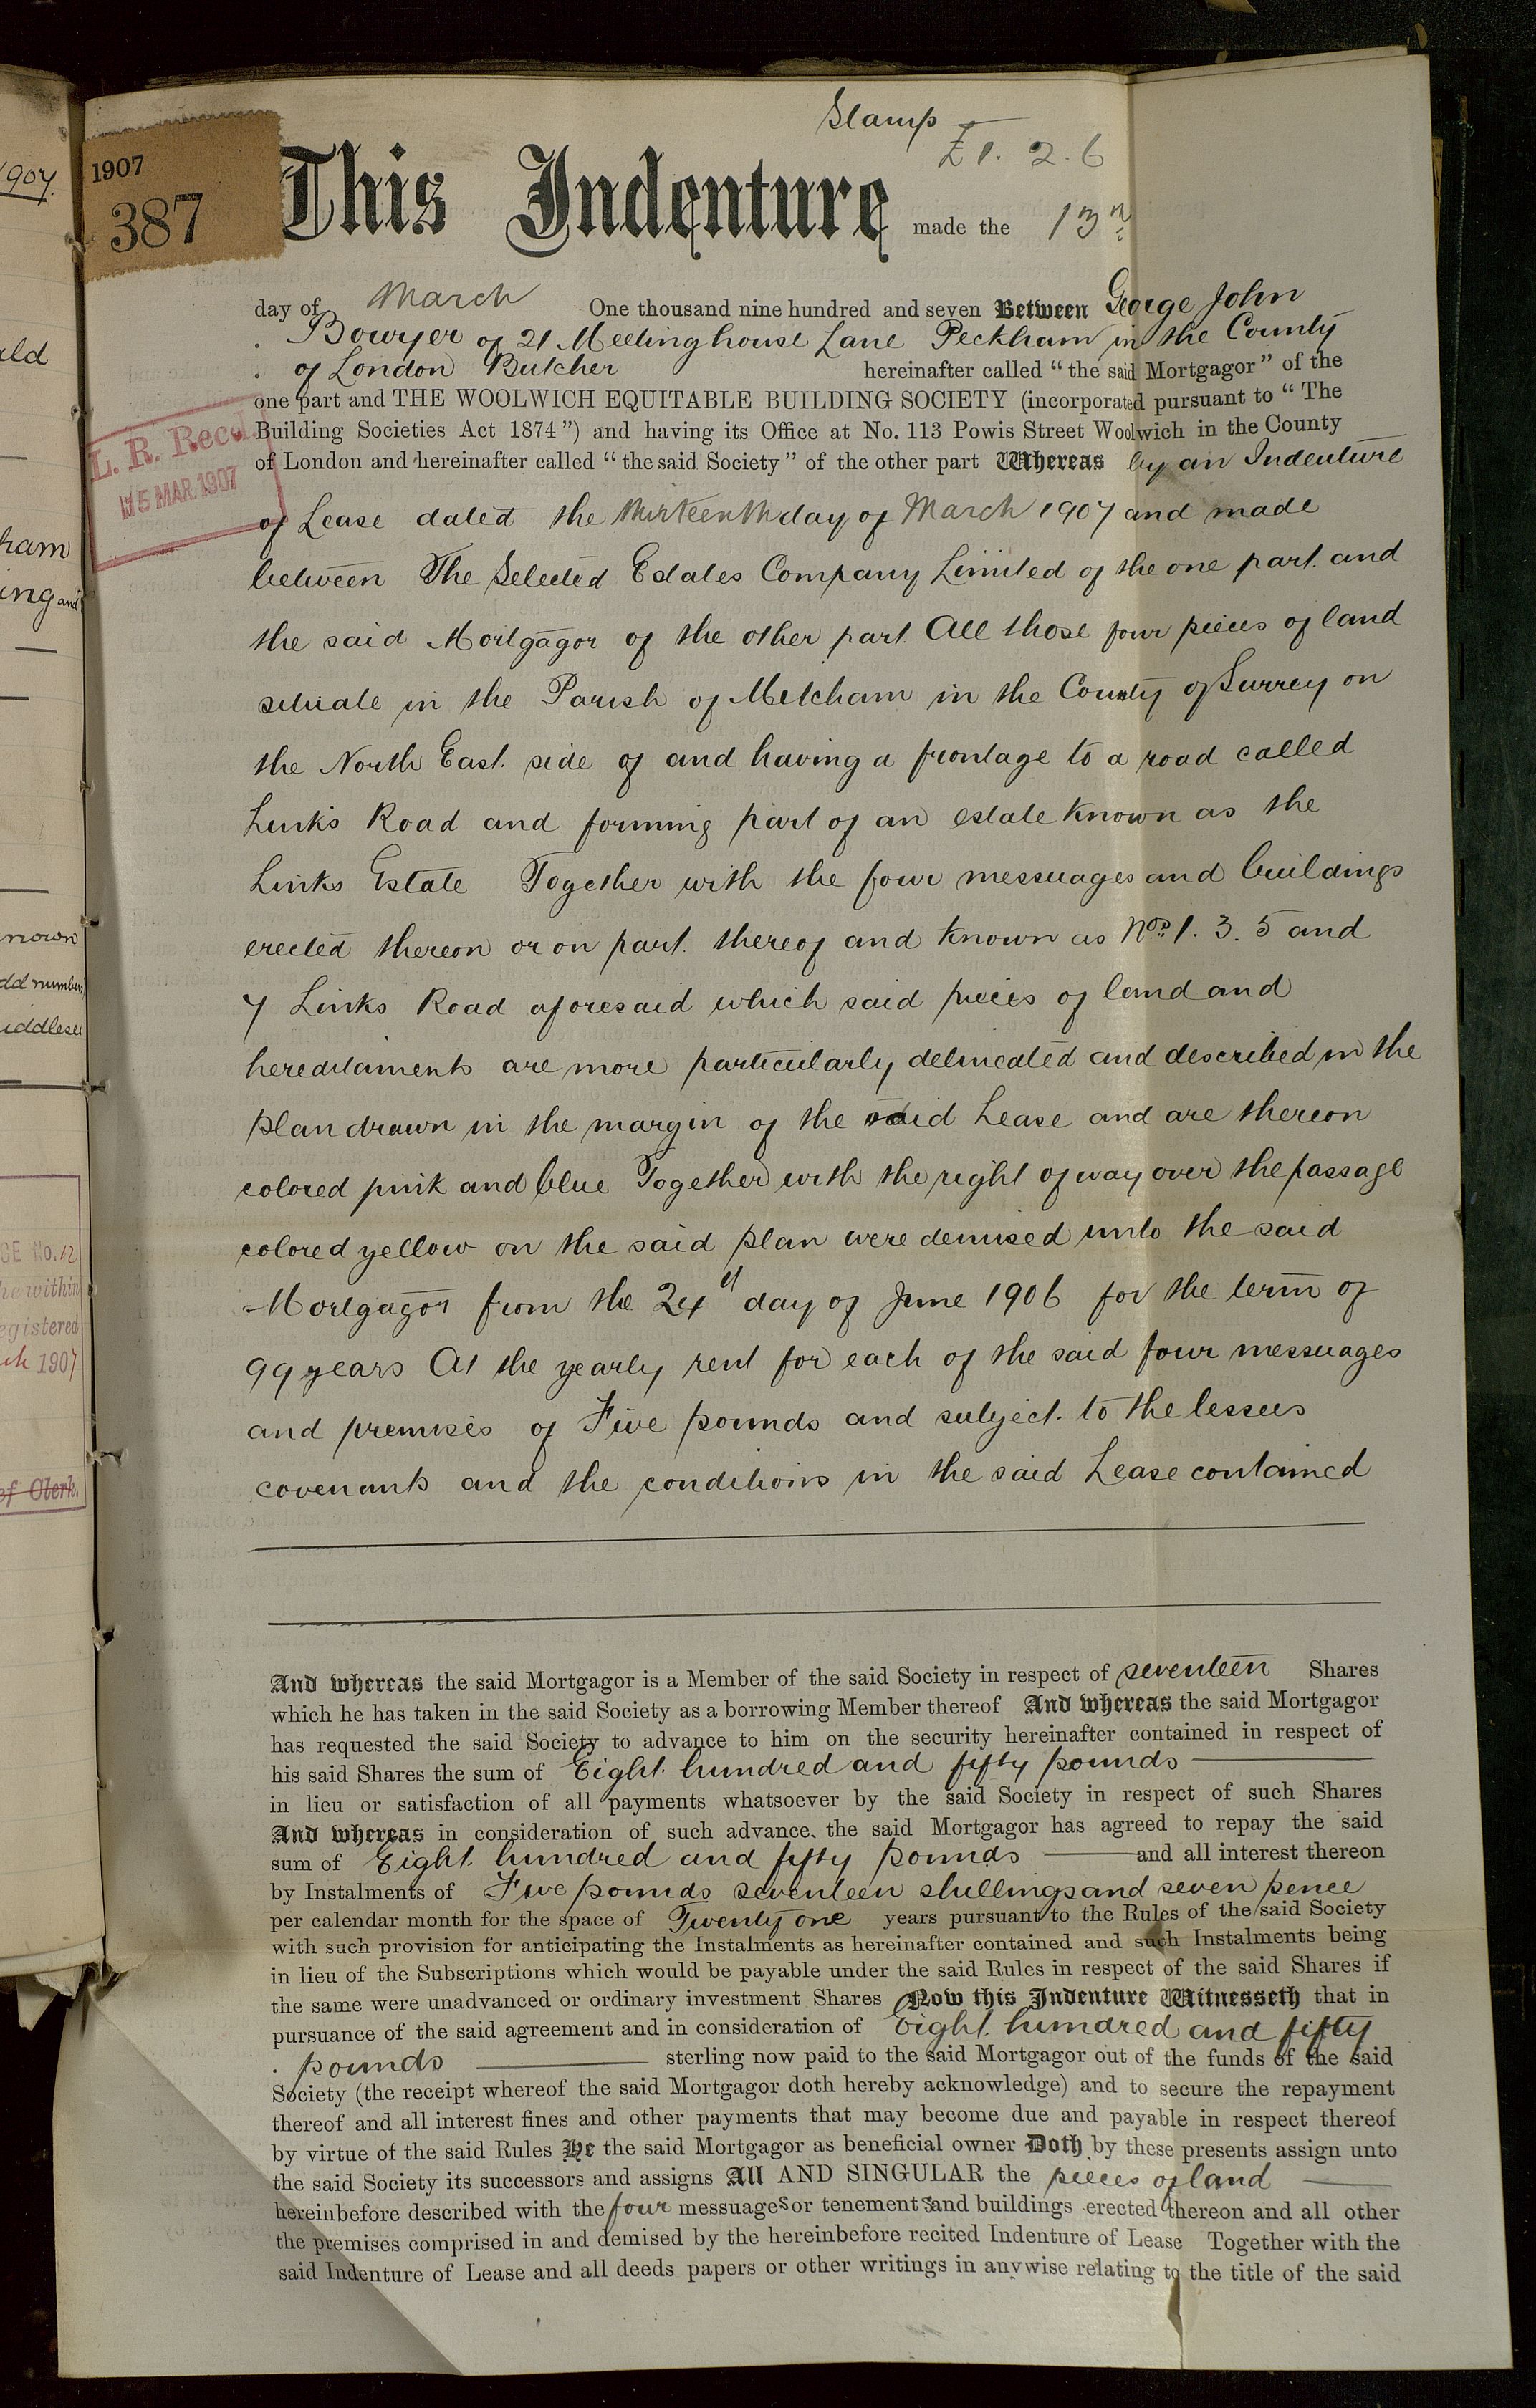 Stamp
£1. 2. 6
1907
387
This Indenture made the 13th
day of March One thousand nine hundred and seven Between George John
Bowyer of 21 Meeting house Lane Peckham in the County
of London Butcher hereinafter called "the said Mortgagor" of the
one part and THE WOOLWICH EQUITABLE BUILDING SOCIETY (incorporated pursuant to "The
Building Societies Act 1874") and having its Office at No. 113 Powis Street Woolwich in the County
of London and hereinafter called "the said Society" of the other part Whereas by an Indenture
L. R. Recd.
15 MAR. 1907
of Lease dated the thirteenth day of March 1907 and made
between The Selected Estates Company Limited of the one part and
the said Mortgagor of the other part All those four pieces of land
situate in the Parish of Mitcham in the County of Surrey on
the North East side of and having a frontage to a road called
Links Road and forming part of an estate known as the
Links Estate Together with the four messuages and buildings
erected thereon or on part thereof and known as Nos. 1. 3. 5 and
7 Links Road aforesaid which said pieces of land and
hereditaments are more particularly delineated and described in the
plan drawn in the margin of the said Lease and are thereon
colored pink and blue Together with the right of way over the passage
colored yellow on the said plan were demised unto the said
Mortgagor from the 24th day of June 1906 for the term of
99 years At the yearly rent for each of the said four messuages
and premises of Five pounds and subject to the lessees
covenants and the conditions in the said Lease contained
And whereas the said Mortgagor is a Member of the said Society in respect of seventeen Shares
which he has taken in the said Society as a borrowing Member thereof And whereas the said Mortgagor
has requested the said Society to advance to him on the security hereinafter contained in respect of
his said Shares the sum of Eight hundred and fifty pounds
in lieu or satisfaction of all payments whatsoever by the said Society in respect of such Shares
And whereas in consideration of such advance. the said Mortgagor has agreed to repay the said
sum of Eight hundred and fifty pounds and all interest thereon
by Instalments of Five pounds seventeen shillings and seven pence
per calendar month for the space of Twenty one years pursuant to the Rules of the said Society
with such provision for anticipating the Instalments as hereinafter contained and such Instalments being
in lieu of the Subscriptions which would be payable under the said Rules in respect of the said Shares if
the same were unadvanced or ordinary investment Shares Now this Indenture Witnesseth that in
pursuance of the said agreement and in consideration of Eight hundred and fifty
pounds sterling now paid to the said Mortgagor out of the funds of the said
Society (the receipt whereof the said Mortgagor doth hereby acknowledge) and to secure the repayment
thereof and all interest fines and other payments that may become due and payable in respect thereof
by virtue of the said Rules He the said Mortgagor as beneficial owner Doth by these presents assign unto
the said Society its successors and assigns All AND SINGULAR the pieces of land
hereinbefore described with the four messuages or tenements and buildings erected thereon and all other
the premises comprised in and demised by the hereinbefore recited Indenture of Lease Together with the
said Indenture of Lease and all deeds papers or other writings in anywise relating to the title of the said